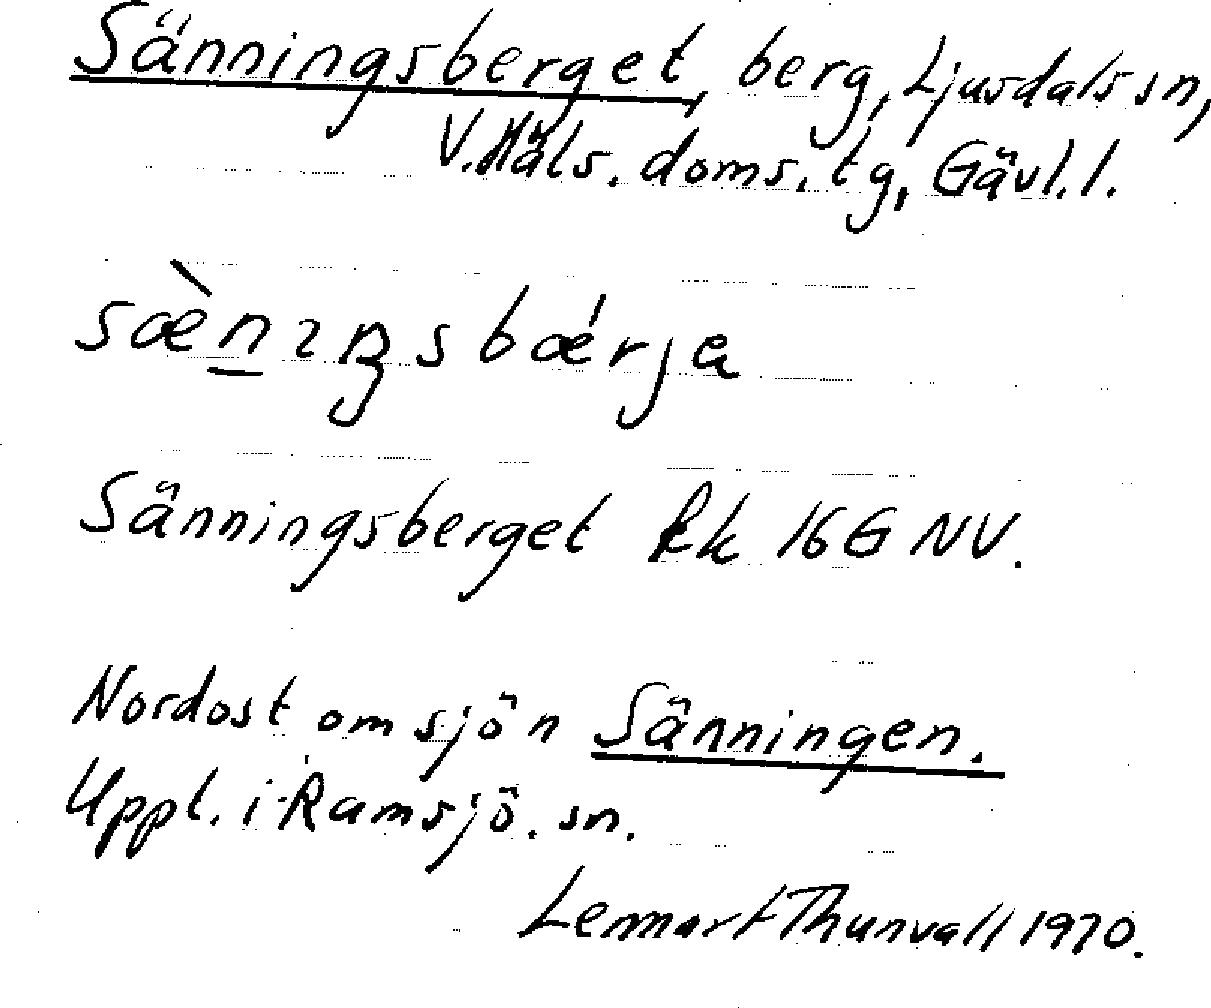 Sänningsberget, berg, Ljusdals sn,
V. Häls. doms. tg, Gävl. l.
Sänningsberget Rk 16G NV.
Nordost om sjön Sänningen.
Uppl. i Ramsjö. sn.
Lennart Thunvall 1970.